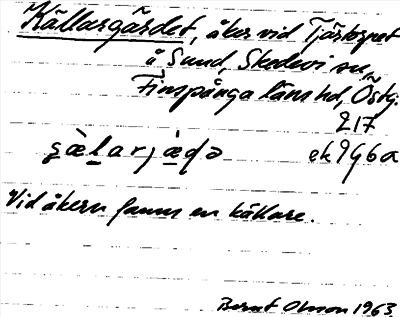 Källargärdet, åker vid Tjärtorpet
å Sund, Skedevi sn,
Finspånga läns hd, Östg.
217
ek 9g6a
Vid åkern fanns en källare.
Bernt Olsson 1963.